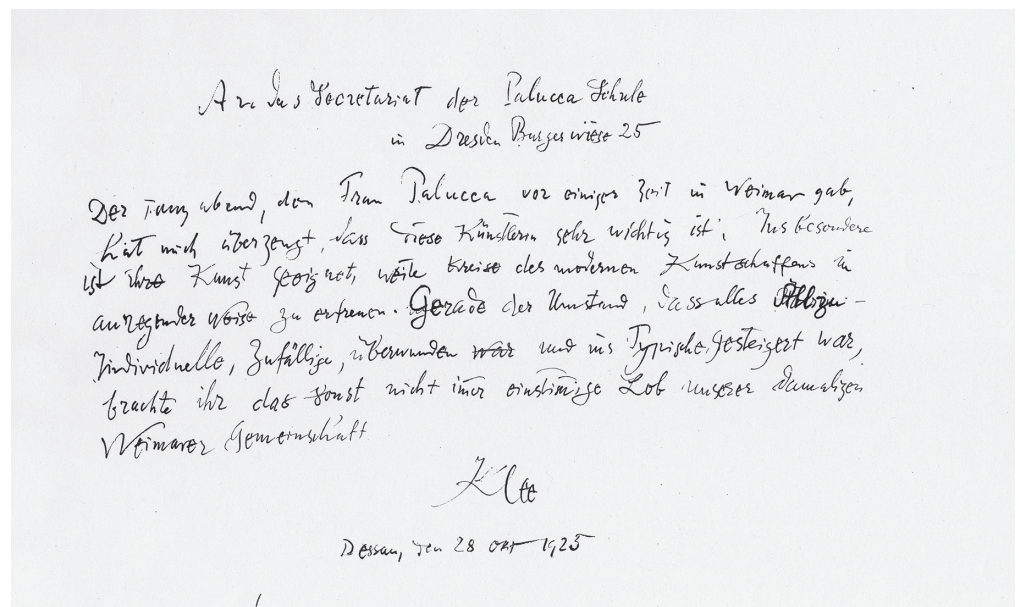 An das Secretariat der Palucca Schule
in Dresden Burgerwiese 25
Der Tanzabend, den Frau Palucca vor einiger Zeit in Weimar gab,
hat mich überzeugt, dass diese Künstlerin sehr wichtig ist; Insbesondere
ist ihre Kunst geeignet, weite Kreise des modernen Kunstschaffens in
anregender Weise zu erfreuen. Gerade der Umstand, dass alles
Individuelle, Zufällige, überwunden war und ins Typische gesteigert war,
brachte ihr das sonst nicht imer einstimige Lob unserer damaligen
Weimarer Gemeinschaft
Klee
Dessau, den 28 Okt 1925